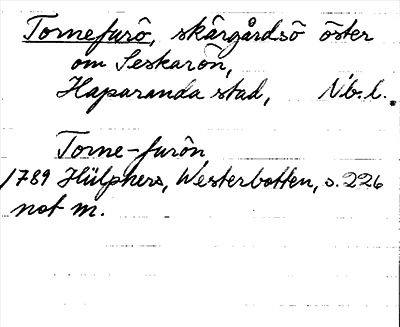 Tornefurö, skärgårdsö öster
om Seskarön,
Haparanda stad, Nb. l.
Torne-furön
1789 Hülphers, Westerbotten, s. 226
not m.